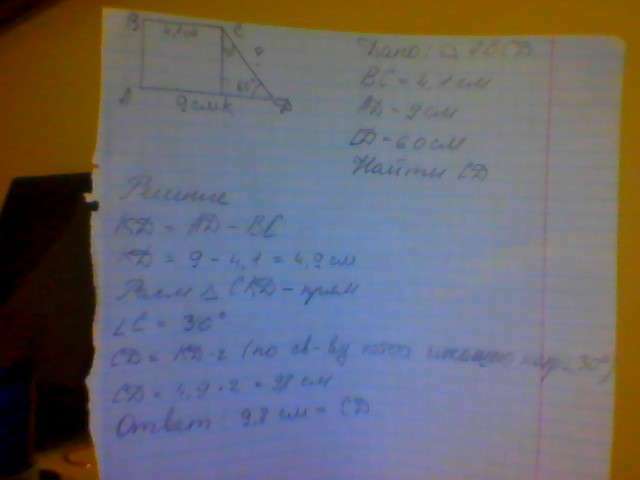 B C
4,1 см
?
60°
A 9 см K D
Дано: △ ABCD
BC = 4,1 см
AD = 9 см
D - 60 см
Найти CD
Решение
KD = AD - BC
KD = 9 - 4,1 = 4,9 см
Расм △ CKD - прям
∠C = 30°
CD = KD · 2 (по св-ву 30°)
CD = 4,9 · 2 = 98 см
Ответ: 9,8 см = CD